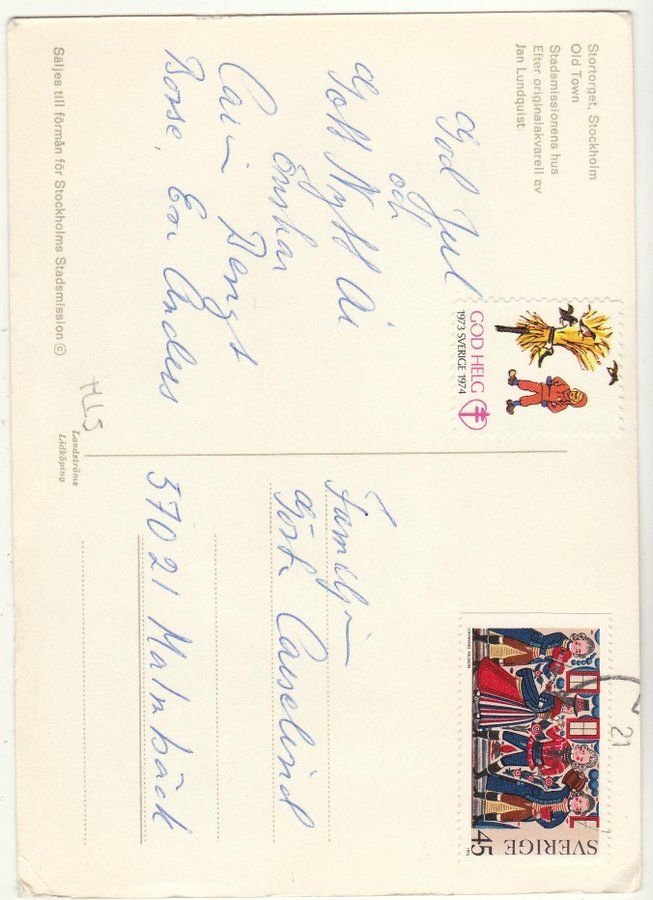 Stortorget, Stockholm
Old Town
Stadsmissionens hus
Efter originalakvarell av
Jan Lundquist
God Jul
och
Gott Nytt År
önskar
Bengt
Börse, Eva Anders
Säljes till förmån för Stockholms Stadsmission ©
GOD HELG
1973 SVERIGE 1974
HLS
Landströms
Lidköping
Familjen
Gösta
57021 Malmbäck
SVERIGE
45
21